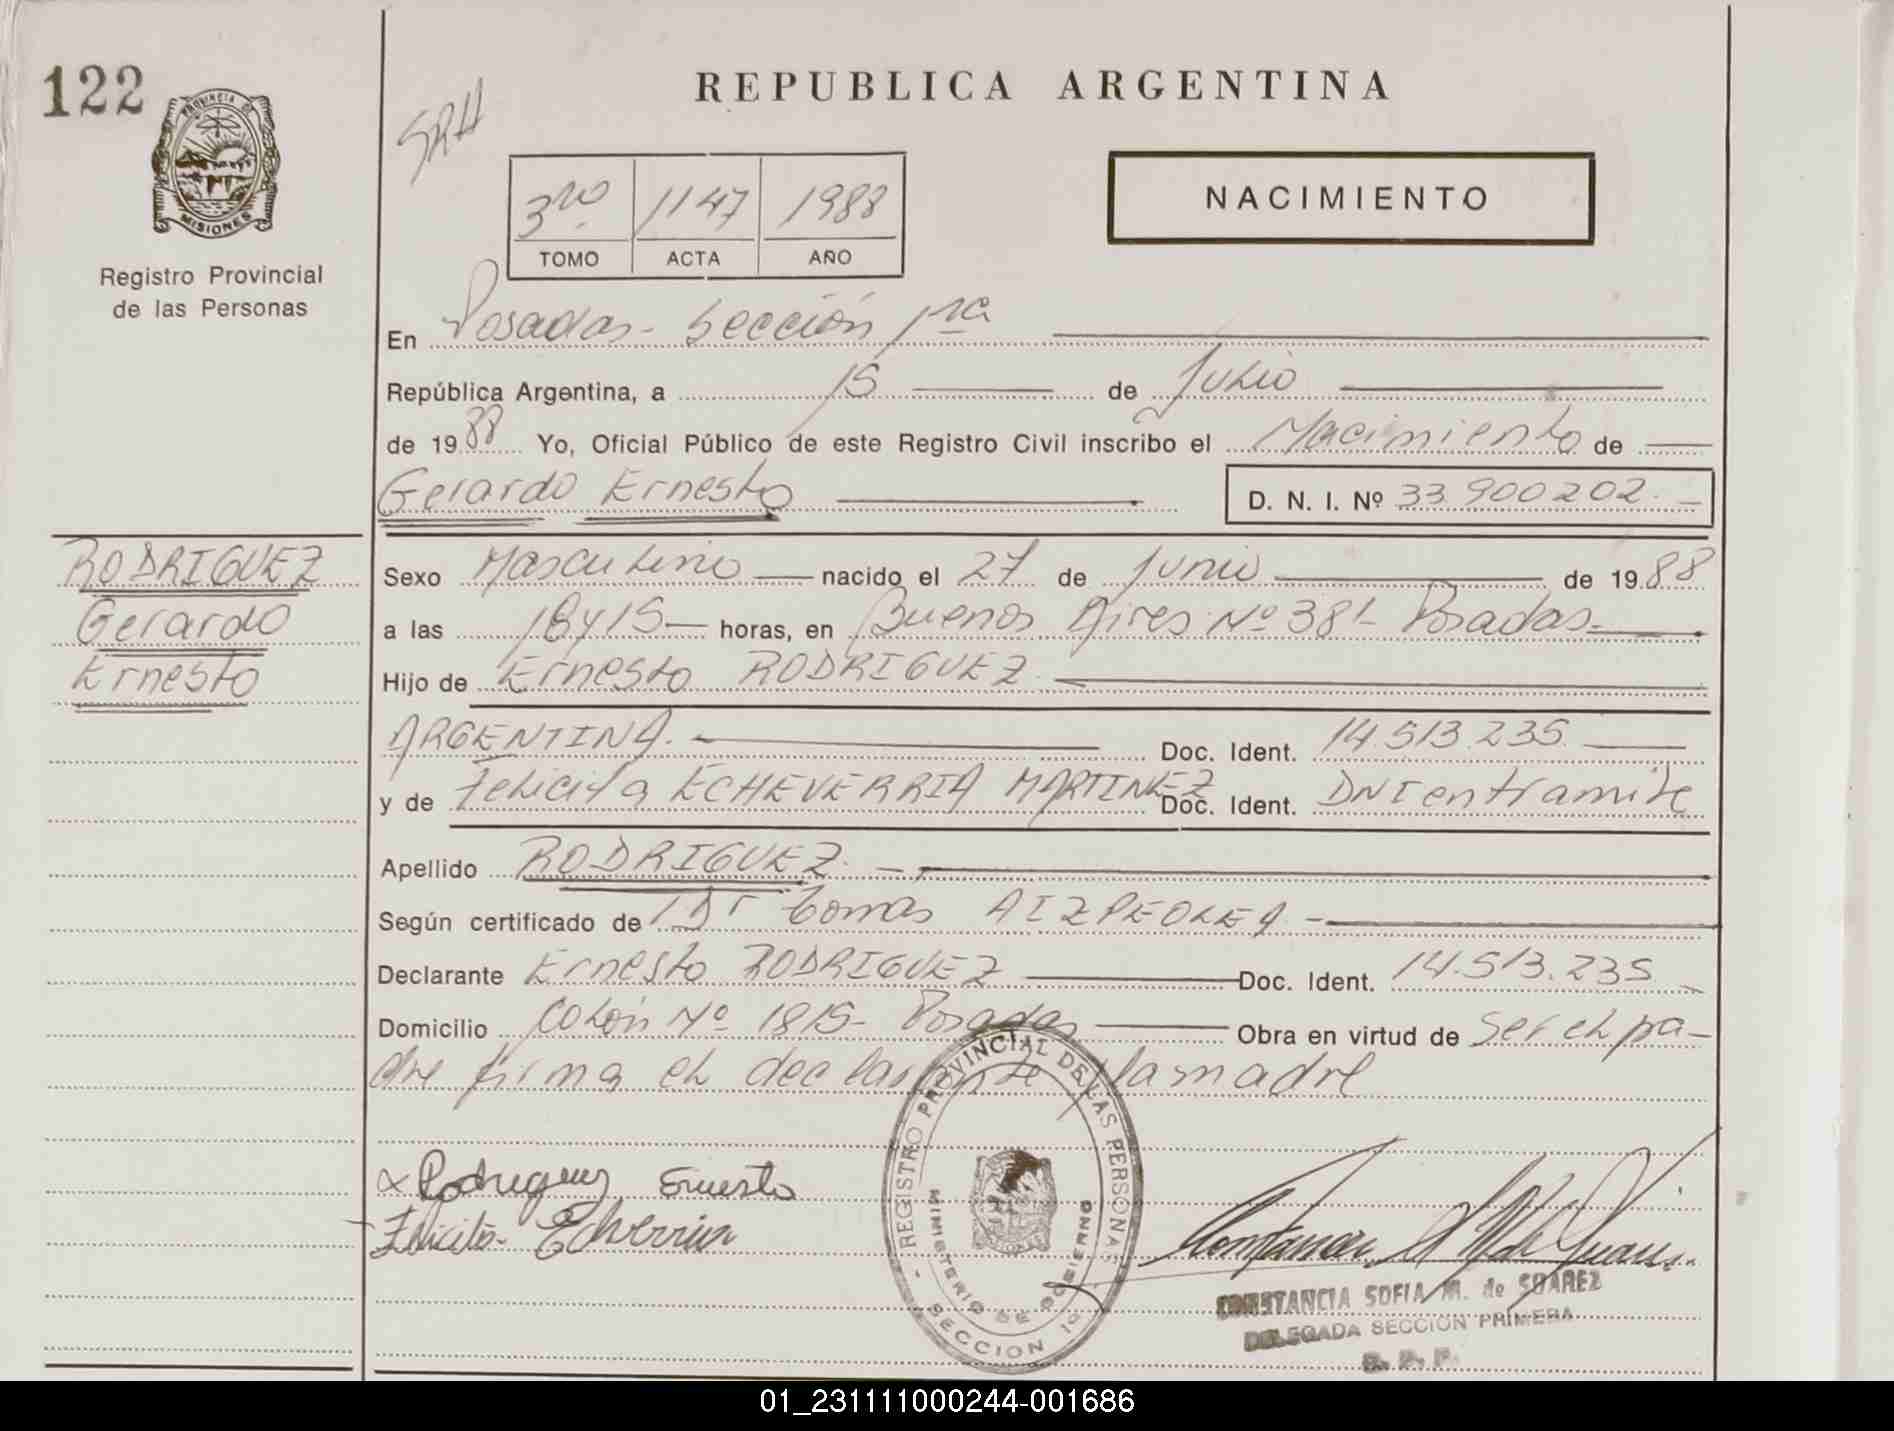 122
SRH
REPUBLICA ARGENTINA
PROVINCIA DE
MISIONES
Registro Provincial
de las Personas
3ro 1147 1988
TOMO ACTA AÑO
NACIMIENTO
En Posadas - Sección 1ra
República Argentina, a 15 de Julio
de 1988 Yo, Oficial Público de este Registro Civil inscribo el Nacimiento de
Gerardo Ernesto D. N. I. Nº 33.900202.-
RODRIGUEZ
Gerardo
Ernesto
Sexo Masculino nacido el 27 de Junio de 1988
a las 18y15 horas, en Buenos Aires Nº 381- Posadas.
Hijo de Ernesto RODRIGUEZ
ARGENTINA. Doc. Ident. 14.513.235
y de Felicita ECHEVERRIA MARTINEZ Doc. Ident. DNI en tramite
Apellido RODRIGUEZ.
Según certificado de Dr Tomas AIZPEOLEA -
Declarante Ernesto RODRIGUEZ Doc. Ident. 14.513.235
Domicilio Colón Nº 1815- Posadas Obra en virtud de ser el pa-
dre firma el declarante y la madre
Rodriguez Ernesto
Felicita Echeverria
REGISTRO PROVINCIAL DE LAS PERSONAS
MINISTERIO DE GOBIERNO
SECCION 1º
CONSTANCIA SOFIA M. de SUAREZ
DELEGADA SECCION PRIMERA
R. P. P.
01_231111000244-001686